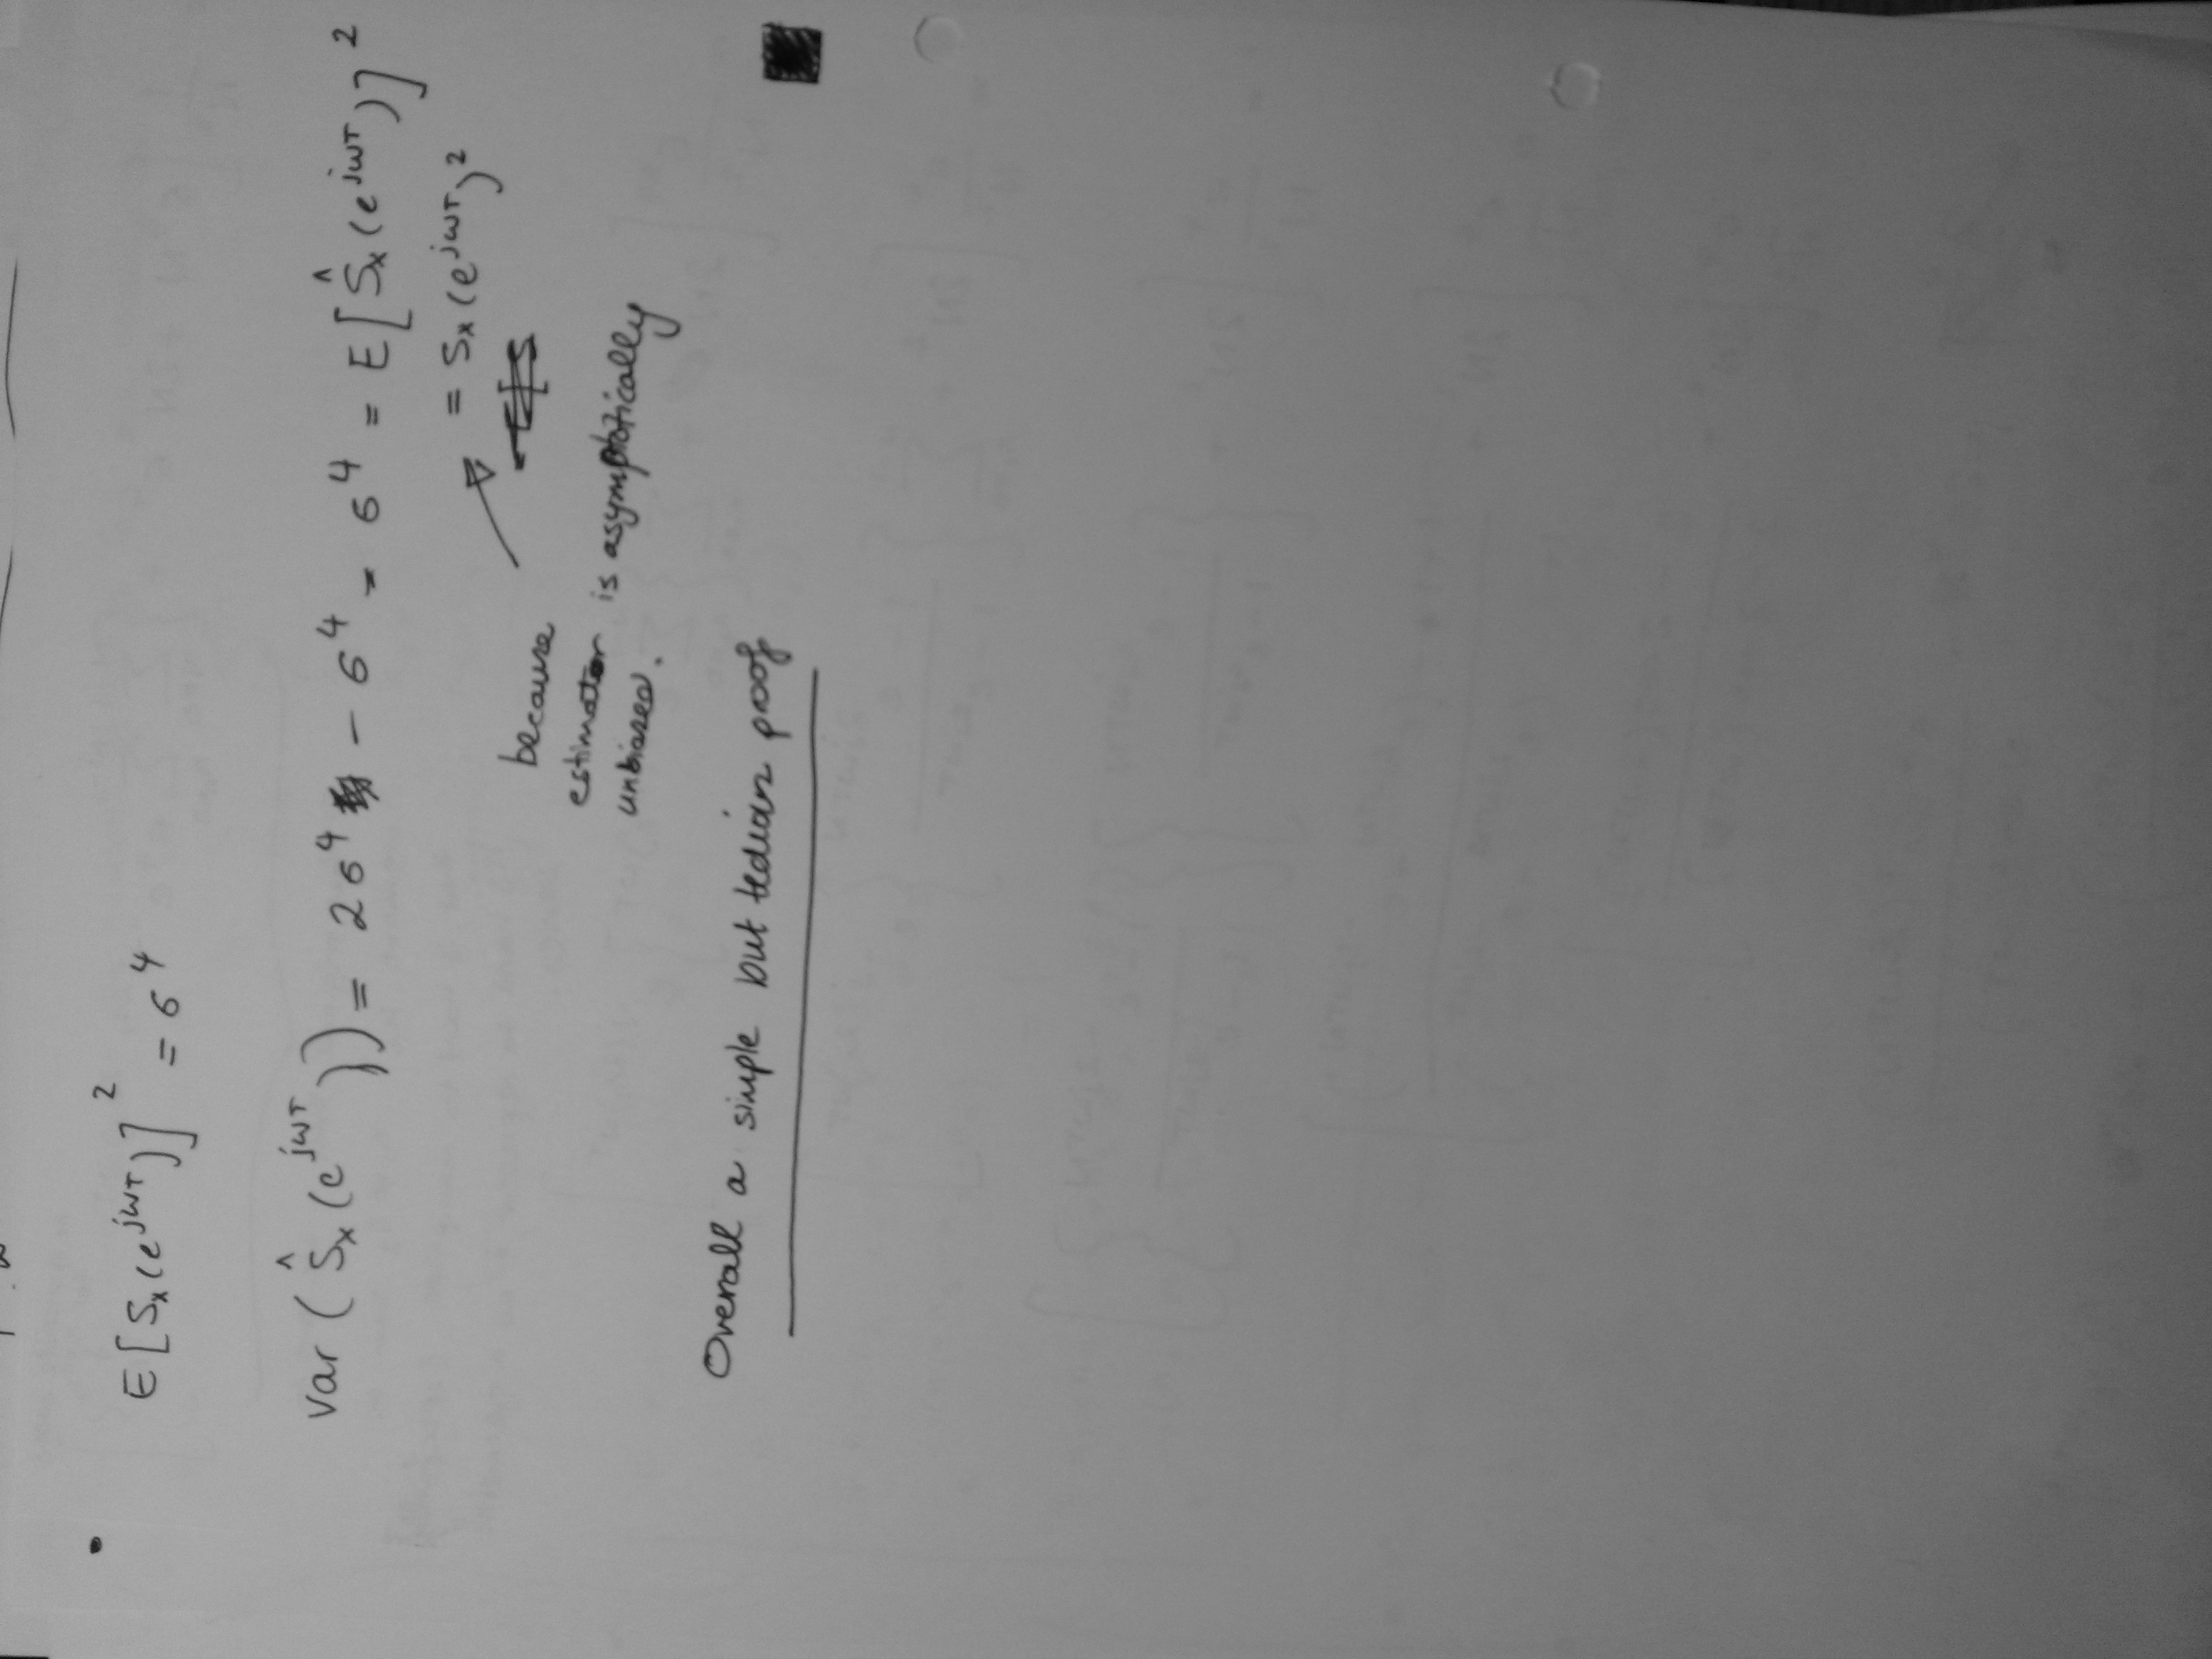 E[Sₓ(e^{jωT})]² = σ⁴
var(Ŝₓ(e^{jωT})) = 2σ⁴ - σ⁴ = σ⁴ = E[Ŝₓ(e^{jωT})]²
= Sₓ(e^{jωT})²
because
estimator is asymptotically
unbiased.
Overall a simple but tedious proof